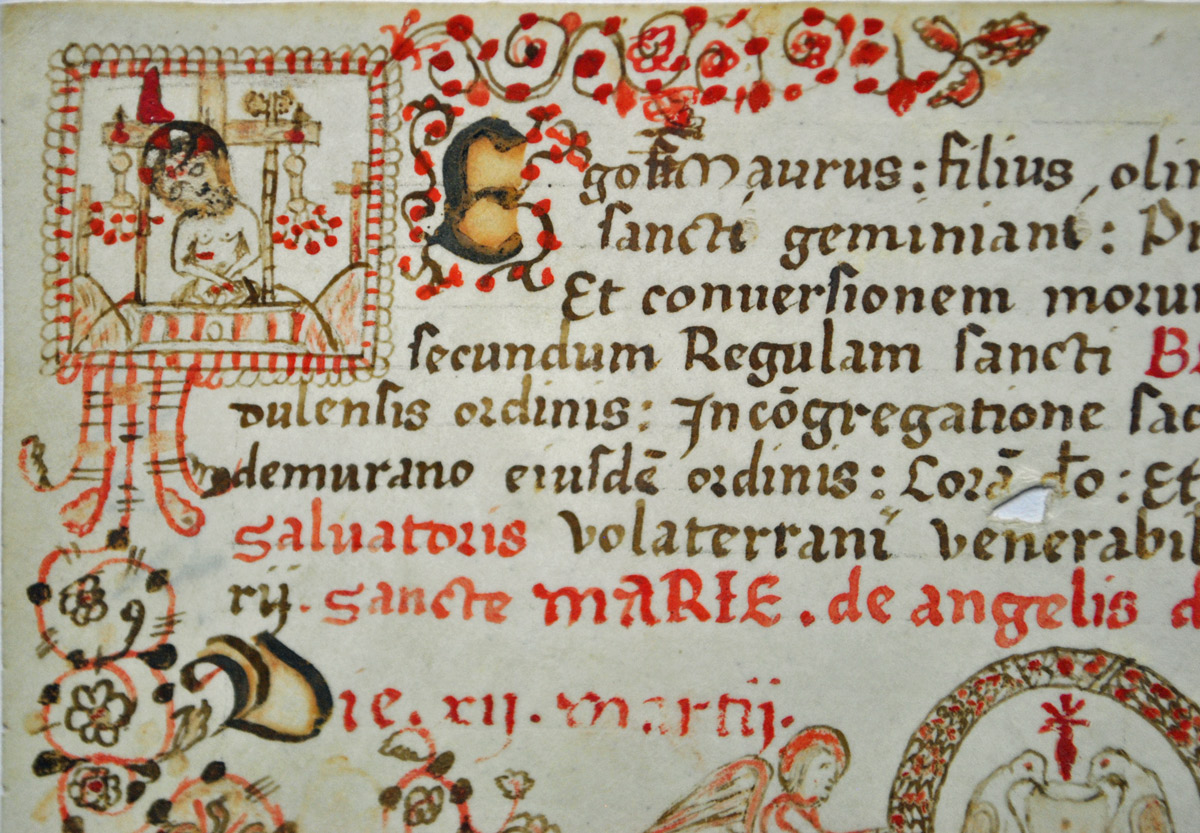 Ego frater Maurus: filius olim
sancti geminiani: Pr
Et conuersionem morum
secundum Regulam sancti Be
dulensis ordinis: In cōgregatione sac
demurano eiusdē ordinis: Et
salvatoris volaterrani venerabil
rij. sancte MARIE. de angelis d
Die. xij. martij.